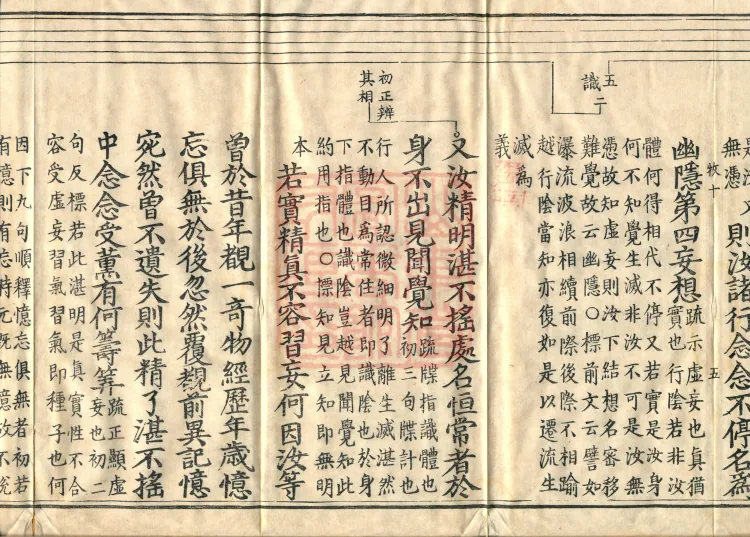 無憑
則汝諸行念念不停名為
牧十
五
幽隱第四妄想疏示虛妄也真猶
實也行陰若非汝
體何得相代不停又若實是汝身
何不知覺生滅非汝不可是汝無
憑故知虛妄則汝下結想名審移
難覺故云幽隱○標前文云譬如
瀑流波浪相續前際後際不相踰
越行陰當知亦復如是以遷流生
滅為
義
五
識二
初正辨
其相
又汝精明湛不搖處名恒常者於
身不出見聞覺知初三句牒計也
疏牒指識體也
行人所認微細明了離生滅湛然
不動目為常住者即識陰也於身
下指體也識陰豈越見聞覺知此
約用指也○標知見立知即無明
本
若實精真不容習妄何因汝等
曾於昔年覩一奇物經歷年歲憶
忘俱無於後忽然覆覩前異記憶
宛然曾不遺失則此精了湛不搖
中念念受熏有何籌筭疏正顯虛
妄也初二
句反標若此湛明是真實性不合
容受虛妄習氣習氣即種子也何
因下九句順釋憶忘俱無者初若
有憶則有忘時元既無憶故不